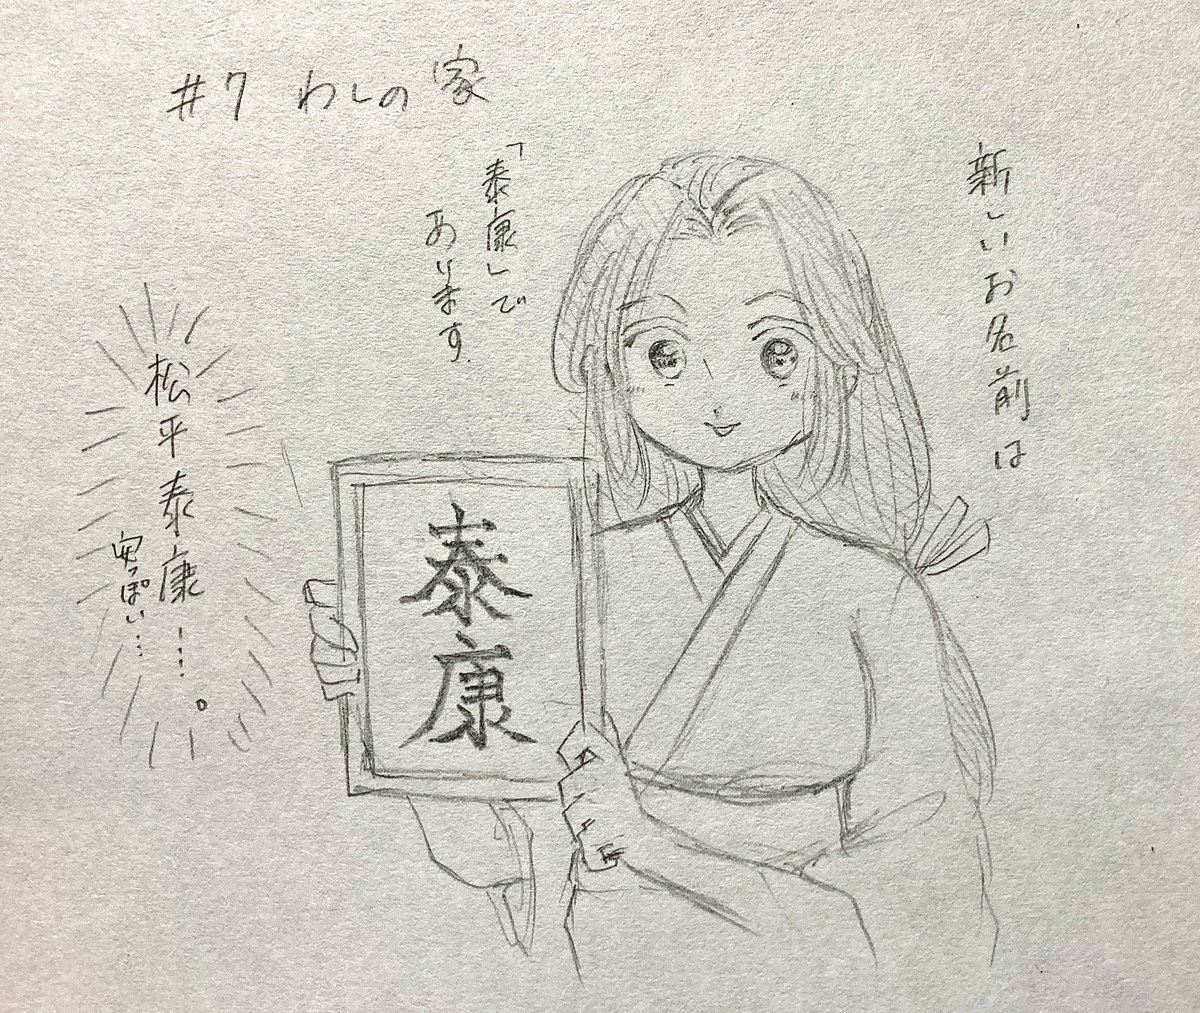 #7 わしの家
新しいお名前は
「泰康」で
あります。
泰康
松平泰康…。
安っぽい…